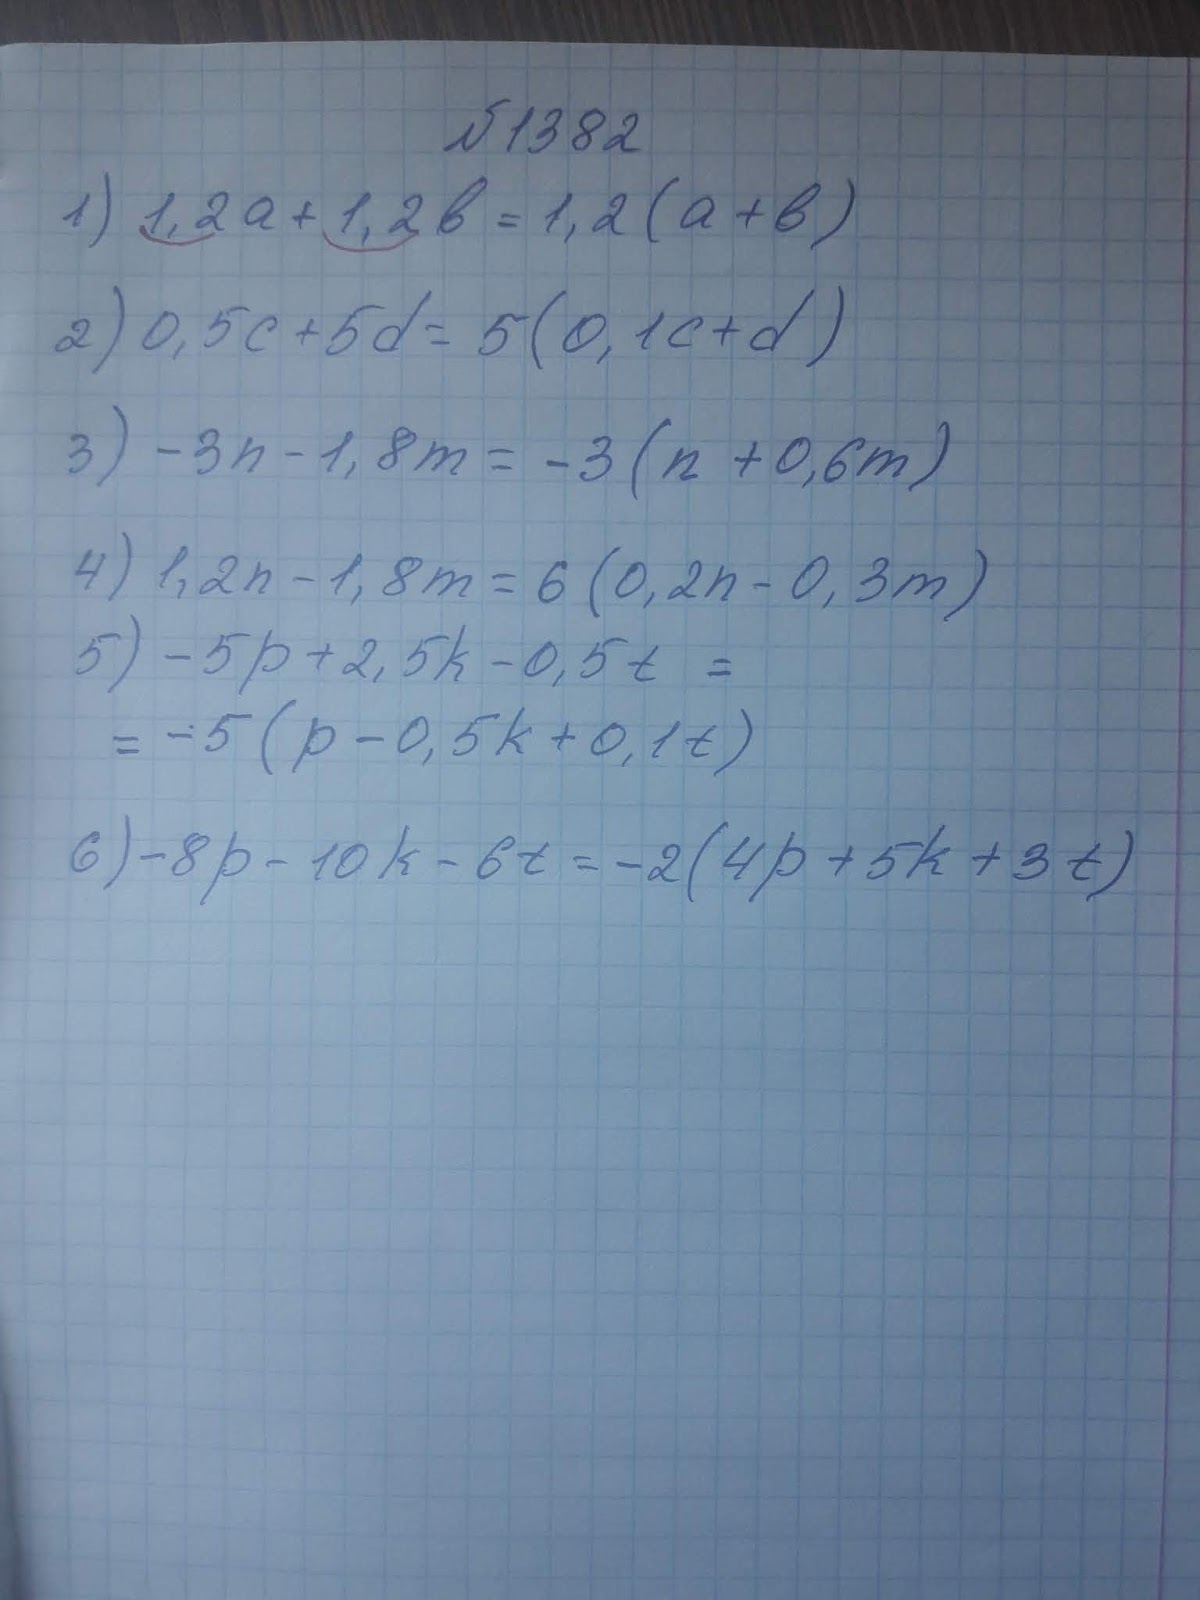 №1382
1) 1,2a + 1,2b = 1,2(a + b)
2) 0,5c + 5d = 5(0,1c + d)
3) -3n - 1,8m = -3(n + 0,6m)
4) 1,2n - 1,8m = 6(0,2n - 0,3m)
5) -5p + 2,5k - 0,5t =
= -5(p - 0,5k + 0,1t)
6) -8p - 10k - 6t = -2(4p + 5k + 3t)